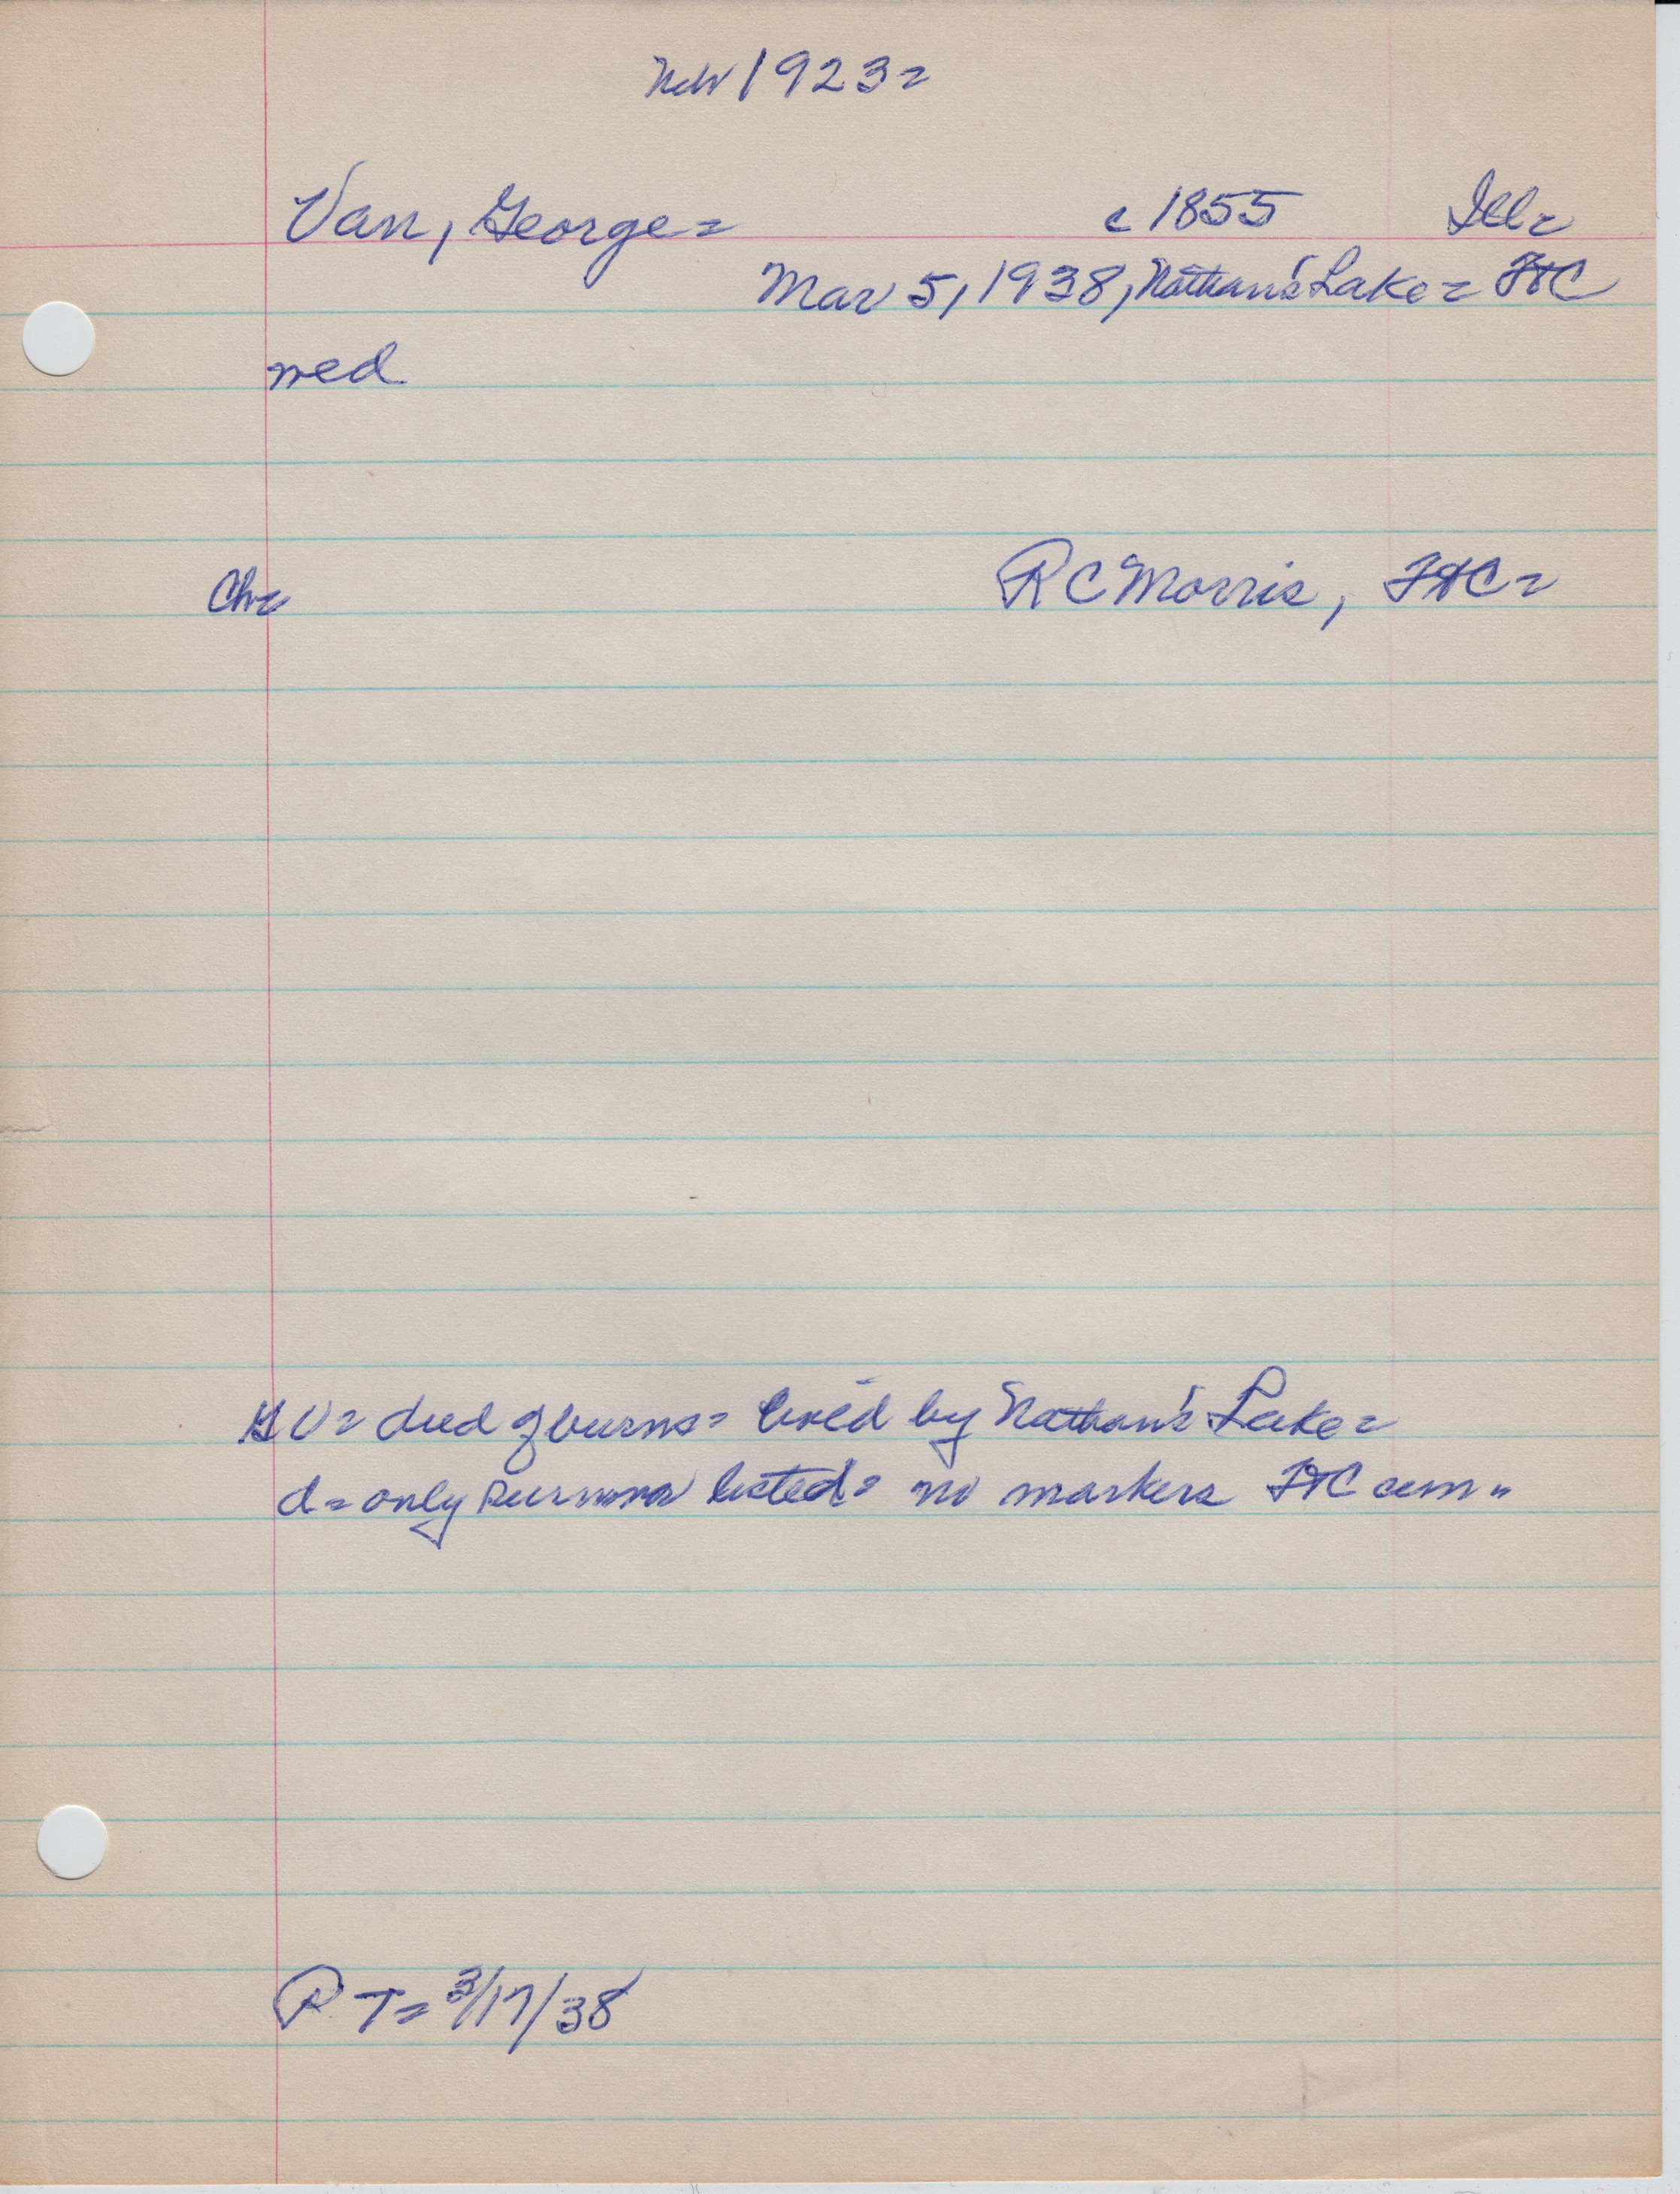 NW 1923=
Van, George= c 1855 Ill=
Mar 5, 1938, Nathan's Lake= FtC
wed
Ch= R C Morris, FtC=
GV= died of burns= lived by Nathan's Lake=
d= only survivor listed= no markers FtC cem=
RT= 3/17/38